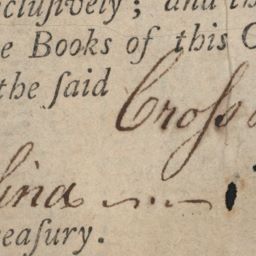 clusively; and th
e Books of this C
the ſaid Croſs
lina
eaſury.